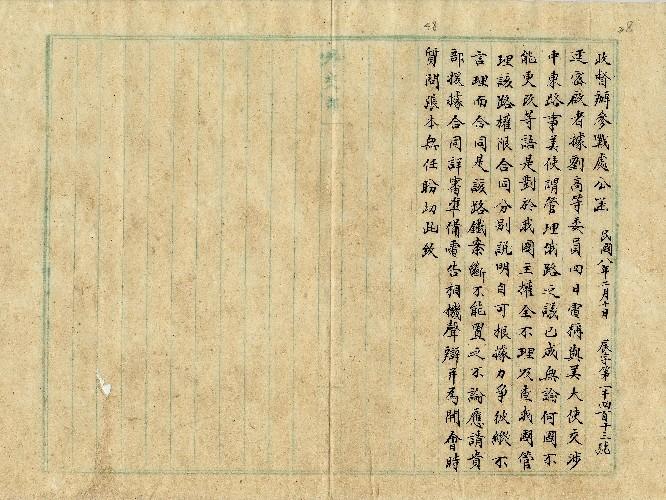 48
28
收督辦參戰處公函 民國八年二月十日 展字第一千四百十三號
逕密啟者據劉高等委員四日電稱與美大使交涉
中東路事美使謂管理俄路之議已成無論何國不
能更改等語是對於我國主權全不理及查我國管
理該路權限合同分別說明自可根據力爭彼縱不
言理而合同是該路鐵案斷不能置之不論應請貴
部援據合同詳審準備電告相機聲辯并為開會時
質問張本無任盼切此致